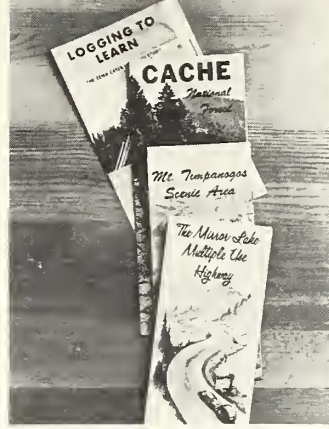 LOGGING TO
LEARN
CACHE
National
Forest
Mt. Timpanogos
Scenic Area
The Mirror Lake
Multiple Use
Highway